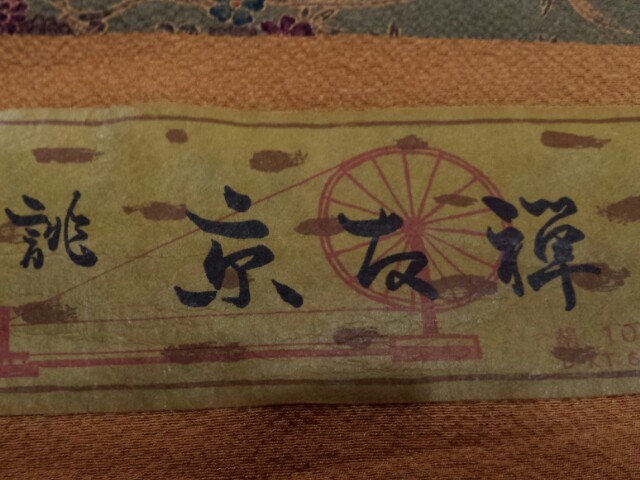 誂 京友禅
絹 10